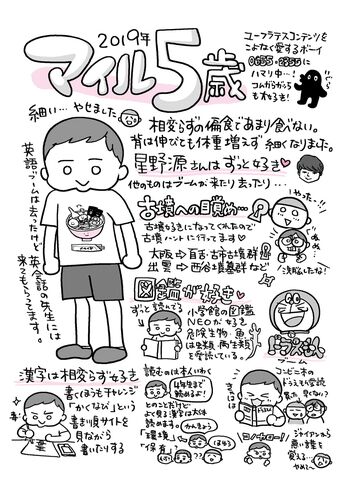 2019年
マイル5歳
ユーフラテスコンテンツを
こよなく愛するボーイ
0655・2355に
ハマり中…!
コムがらがっち
も大好き!
細い… やせました
相変らずの偏食であまり食べない。
背は伸びても体重増えず細くなりました。
星野源さんはずっと好き
他のものはブームが来たり去ったり…
英語ブームは去ったけど
英会話の先生には
来てもらってます。
古墳への目覚め…
やったー!!
古墳好きになってくれたので
古墳ハントに行ってます♡
大阪→百舌・古市古墳群
出雲→西谷墳墓群など
洗脳したな!
図鑑が好き
ずっと読んでる
小学館の図鑑
NEOが好き
危険生物・魚
は虫類・両生類
を読んでいる。
ドラえもん
ブーム
漢字は相変らず好き
書くほうも子チャレンジ
「かくなび」という
書き順サイトを
見ながら
書いたりする
読むのは本人いわく
4年生まで
読めるよ!
とのことだけど
よく見る漢字は大体
読めます。
かんきょう
「環境」
「保有」
ほゆう
コンビニ本の
ドラえもん学読
コノヤロー!
ジャイアンから
悪い言葉を
覚え…
やめて〜